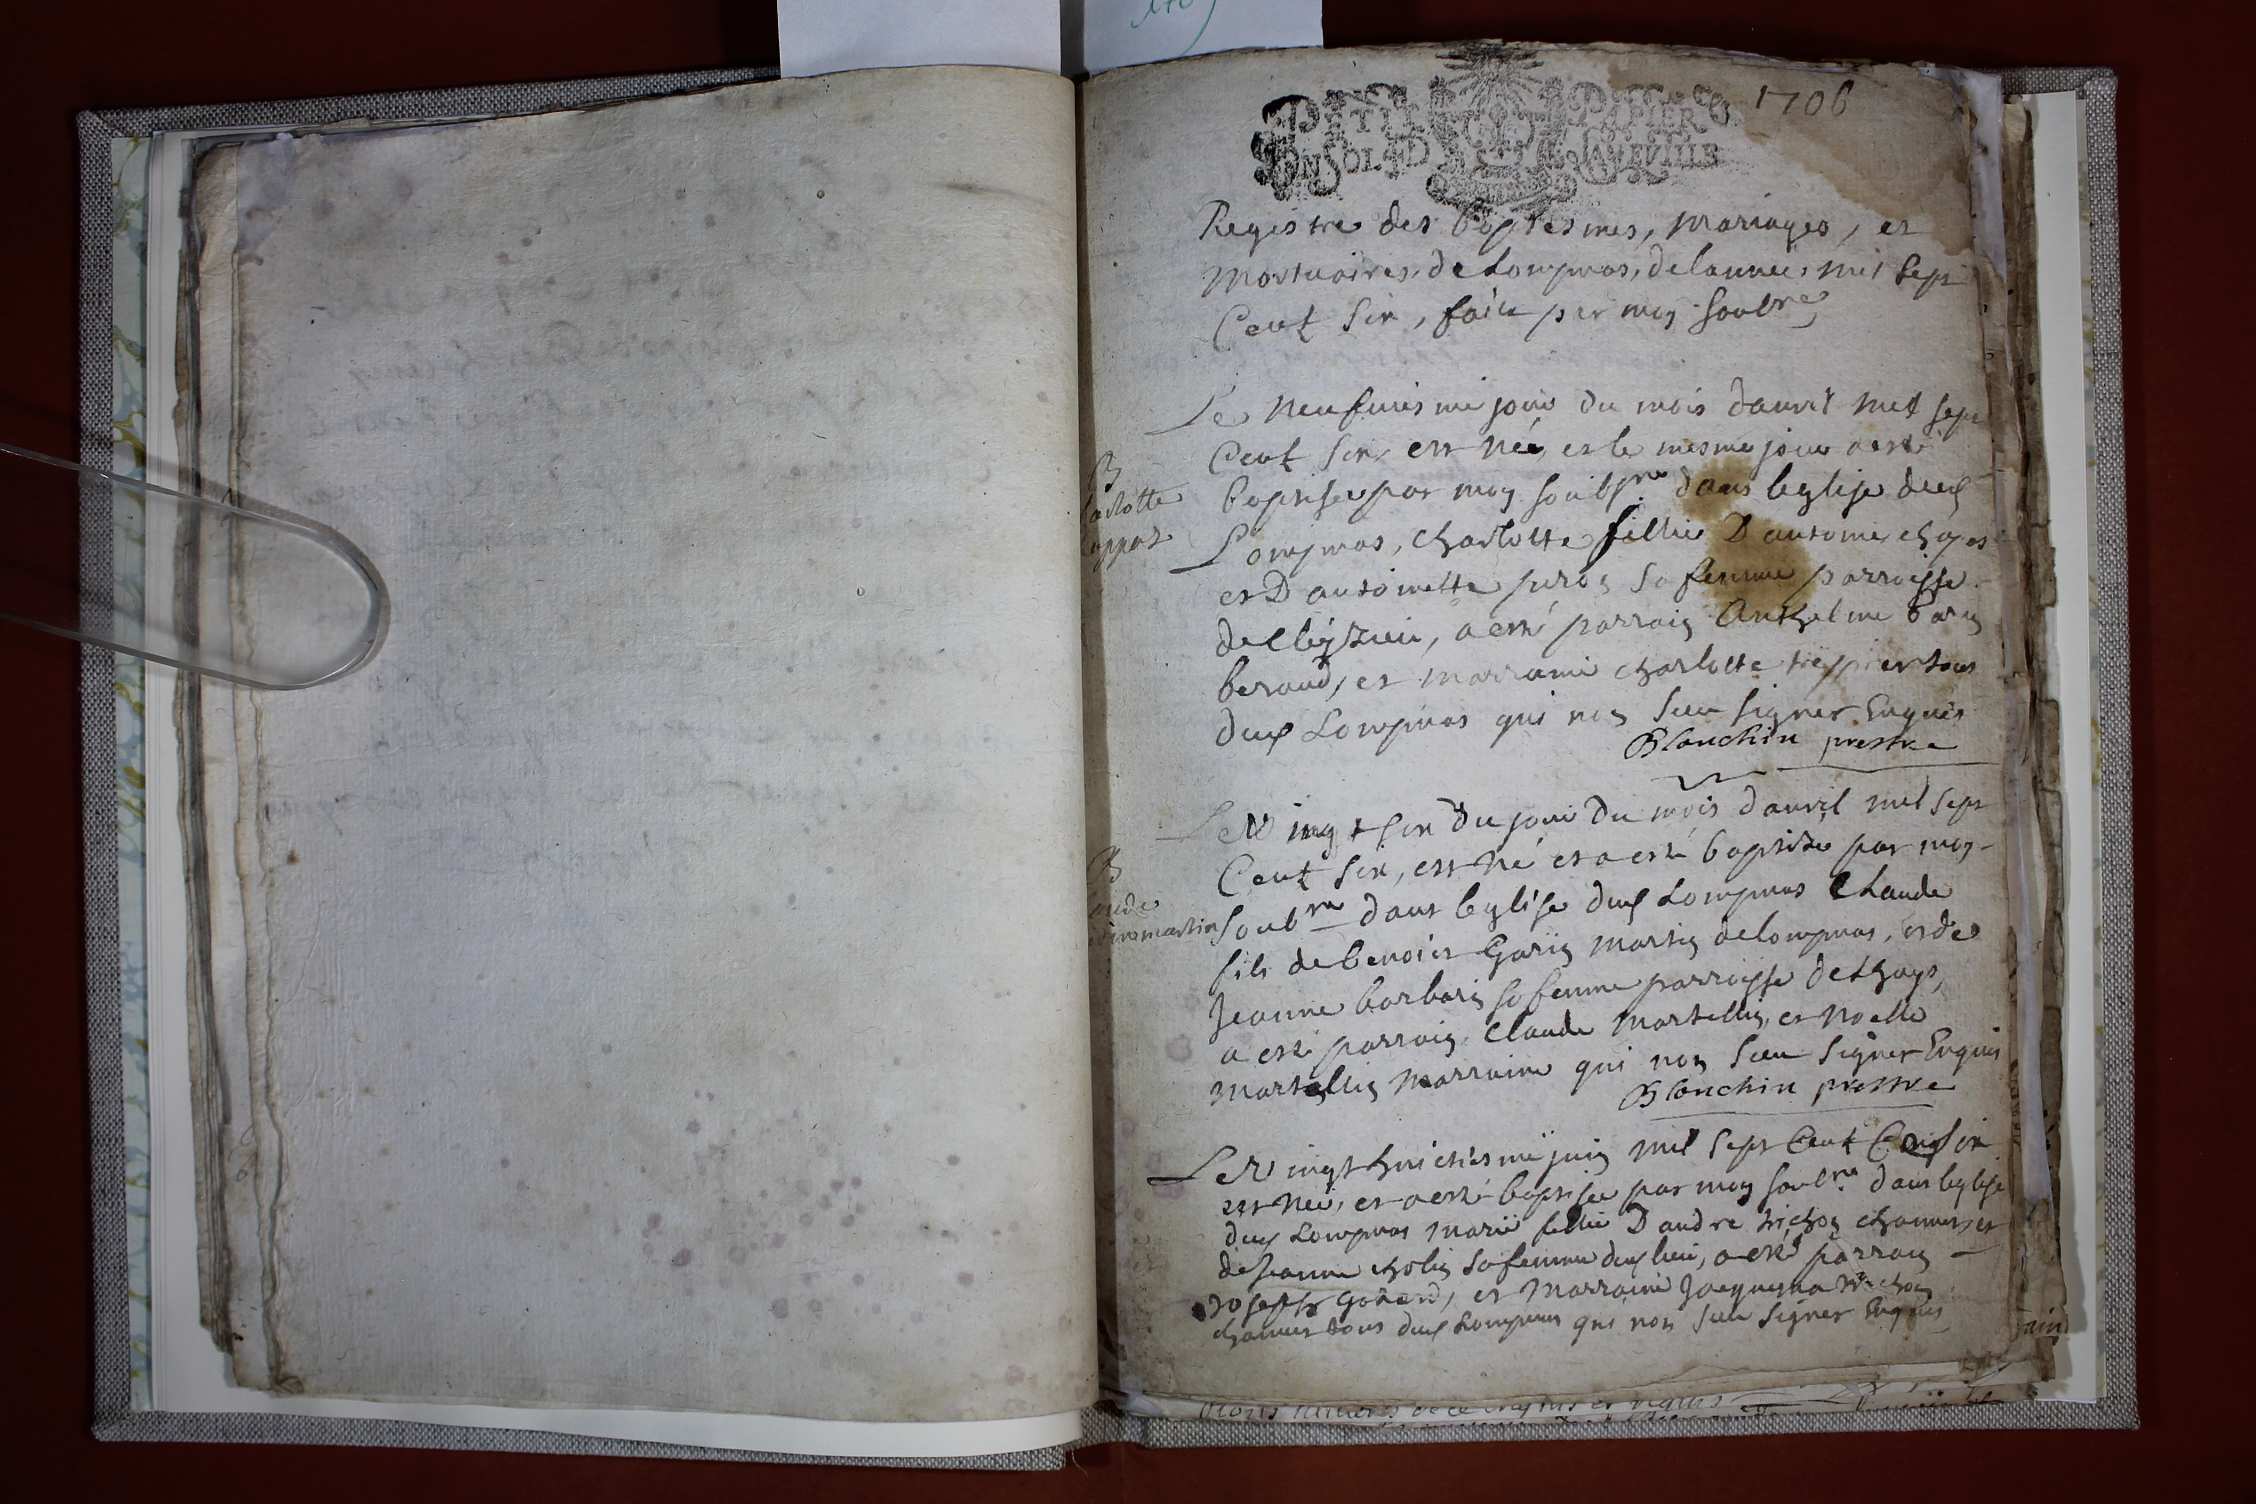 1706
PETIT PAPIER
UN SOL 4D LA FEVILLE
Registre des baptesmes, mariages, et
Mortuaires, de Lompnas, de lannee mil sept
Cent six, faict par moy soubne
Le neufuiesme jour du mois dauvril mil sept
Cent six, est née, et le mesme jour a esté
baptisee par moy soubne dans leglise dud
Lompnas, charlotte fillie D antoine chapot
et D antoinette sa femme parroisse
de a esté parrain Anthelme barin
beraud, et marraine charlotte trippier tous
dud Lompnas qui non sceu signer Enquis
Blanchin prestre
B
arlotte
appot
Le Vingt six du jour du mois dauvril mil sept
Cent six, est né et a esté baptisée par moy
soubne dans leglise dud Lompnas Claude
fils de benoist Garin martin de lompnas, et de
Jeanne barbarin sa femme parroisse de
a esté parrain, Claude Martellin, et Noelle
Martellin Marraine qui non sceu signer Enquis
Blanchin prestre
B
aude
martin
Le Vingt huictiesme juin mil sept Cent six
est née, et a esté baptisee par moy soubne dans leglise
dud Lompnas Marie fillie D andre trichon chamers et
de Jeanne cholin sa femme dud lieu, a esté parrain
Joseph et Marraine Jacquema trichon
chamers tous dud Lompnas qui non sceu signer Enquis